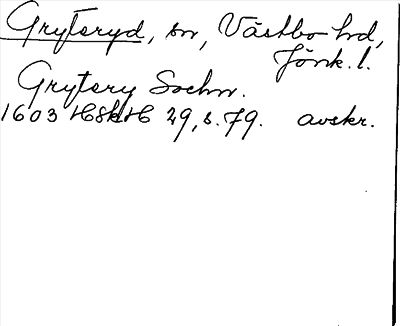 Gryteryd, sn, Västbo hd,
Jönk. l.
Grytery Sochn.
1603 HSkH 29, s. 79. avskr.